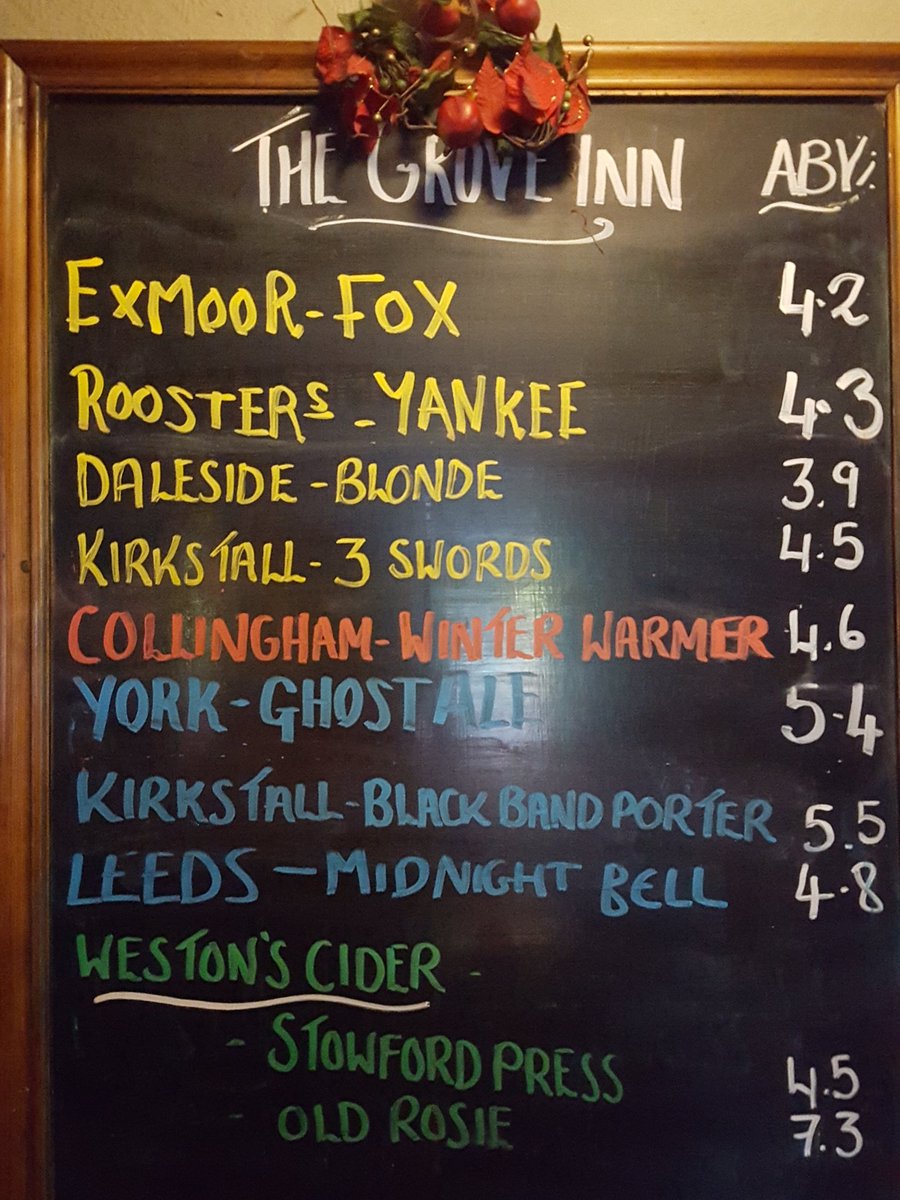 THE GROVE INN ABV%
EXMOOR-FOX 4.2
ROOSTERS -YANKEE 4.3
DALESIDE -BLONDE 3.9
KIRKSTALL- 3 SWORDS 4.5
COLLINGHAM-WINTER WARMER 4.6
YORK-GHOST ALE 5.4
KIRKSTALL-BLACK BAND PORTER 5.5
LEEDS - MIDNIGHT BELL 4.8
WESTON'S CIDER -
- STOWFORD PRESS 4.5
- OLD ROSIE 7.3